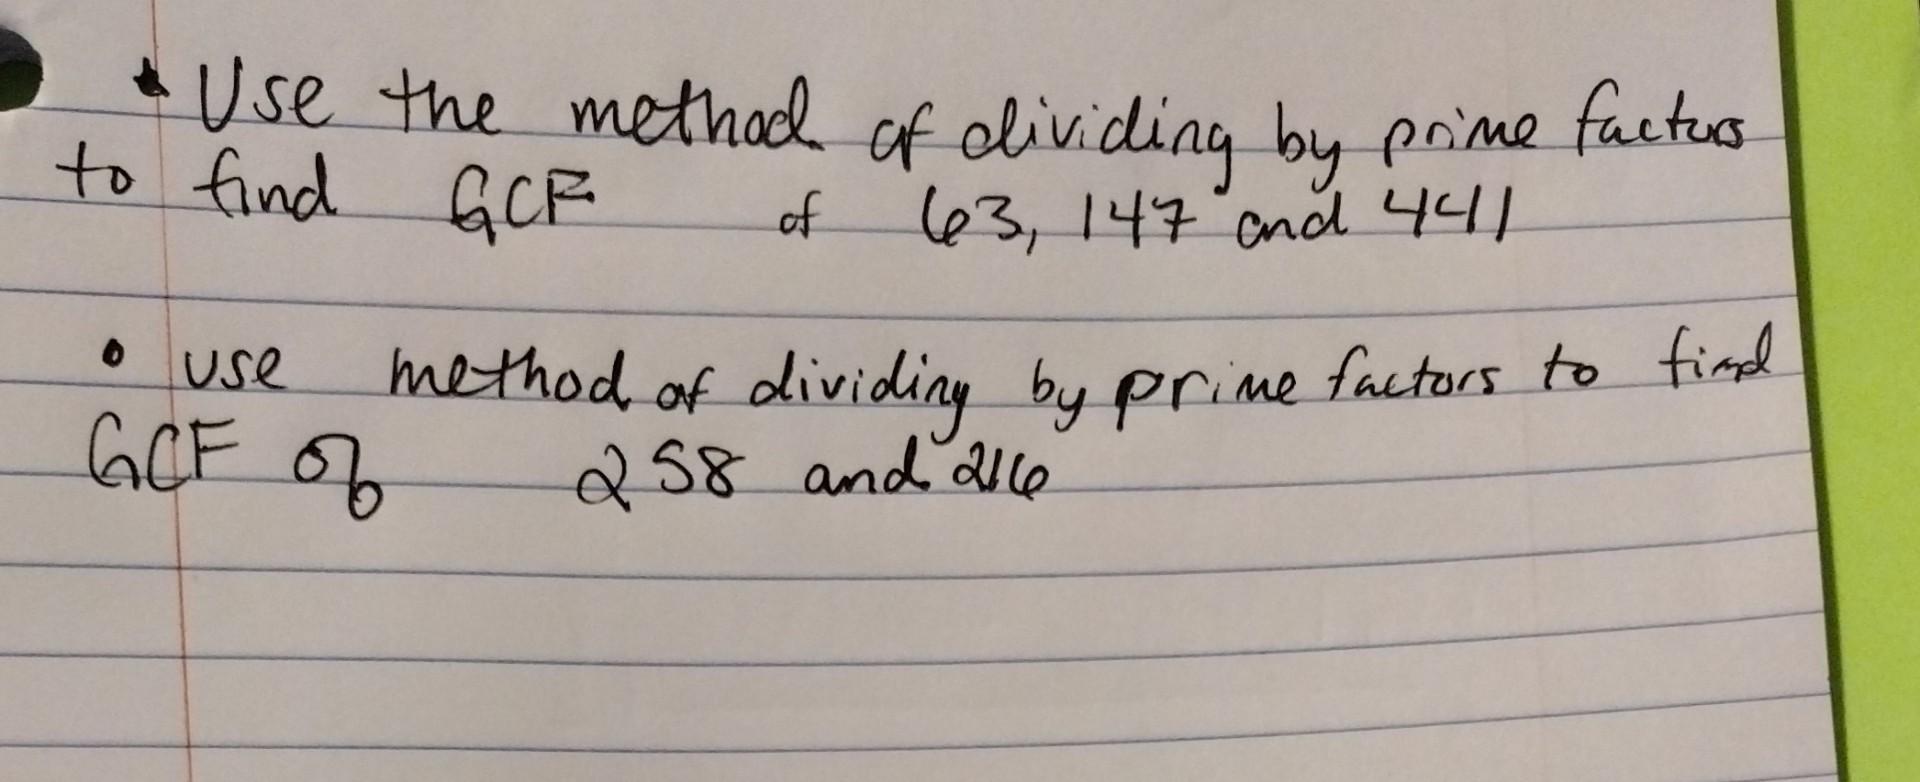 • Use the method of dividing by prime factors
to find GCF of 63, 147 and 441
• use method of dividing by prime factors to find
GCF of 258 and 216